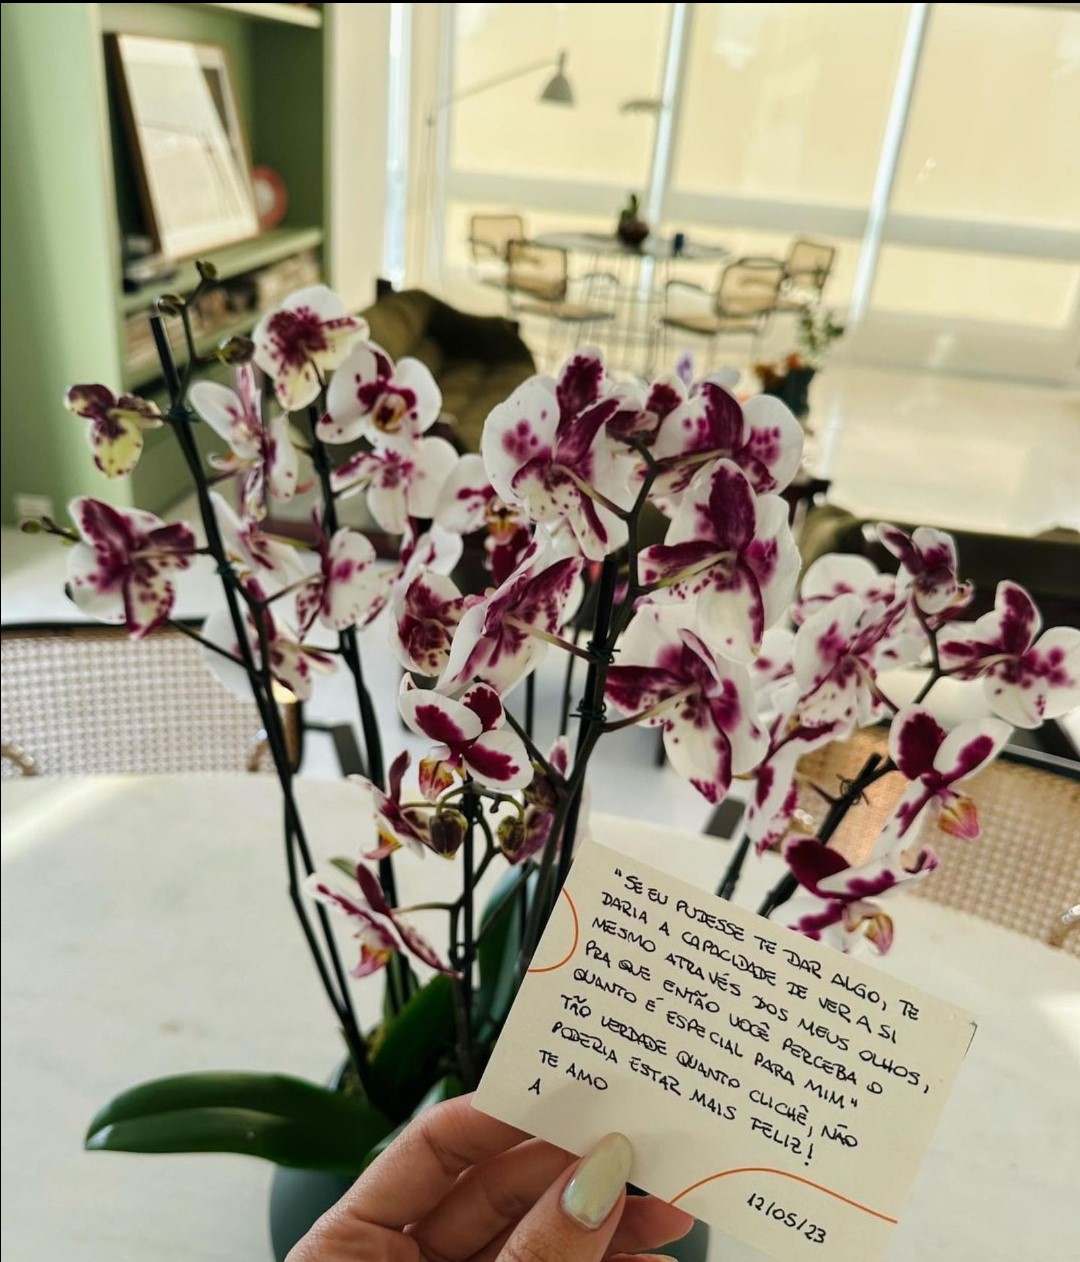 "SE EU PUDESSE TE DAR ALGO, TE
DARIA A CAPACIDADE DE VER A SI
MESMO ATRAVÉS DOS MEUS OLHOS,
PRA QUE ENTÃO VOCÊ PERCEBA O
QUANTO É ESPECIAL PARA MIM"
TÃO VERDADE QUANTO CLICHÊ, NÃO
PODERIA ESTAR MAIS FELIZ!
TE AMO
A
12/05/23